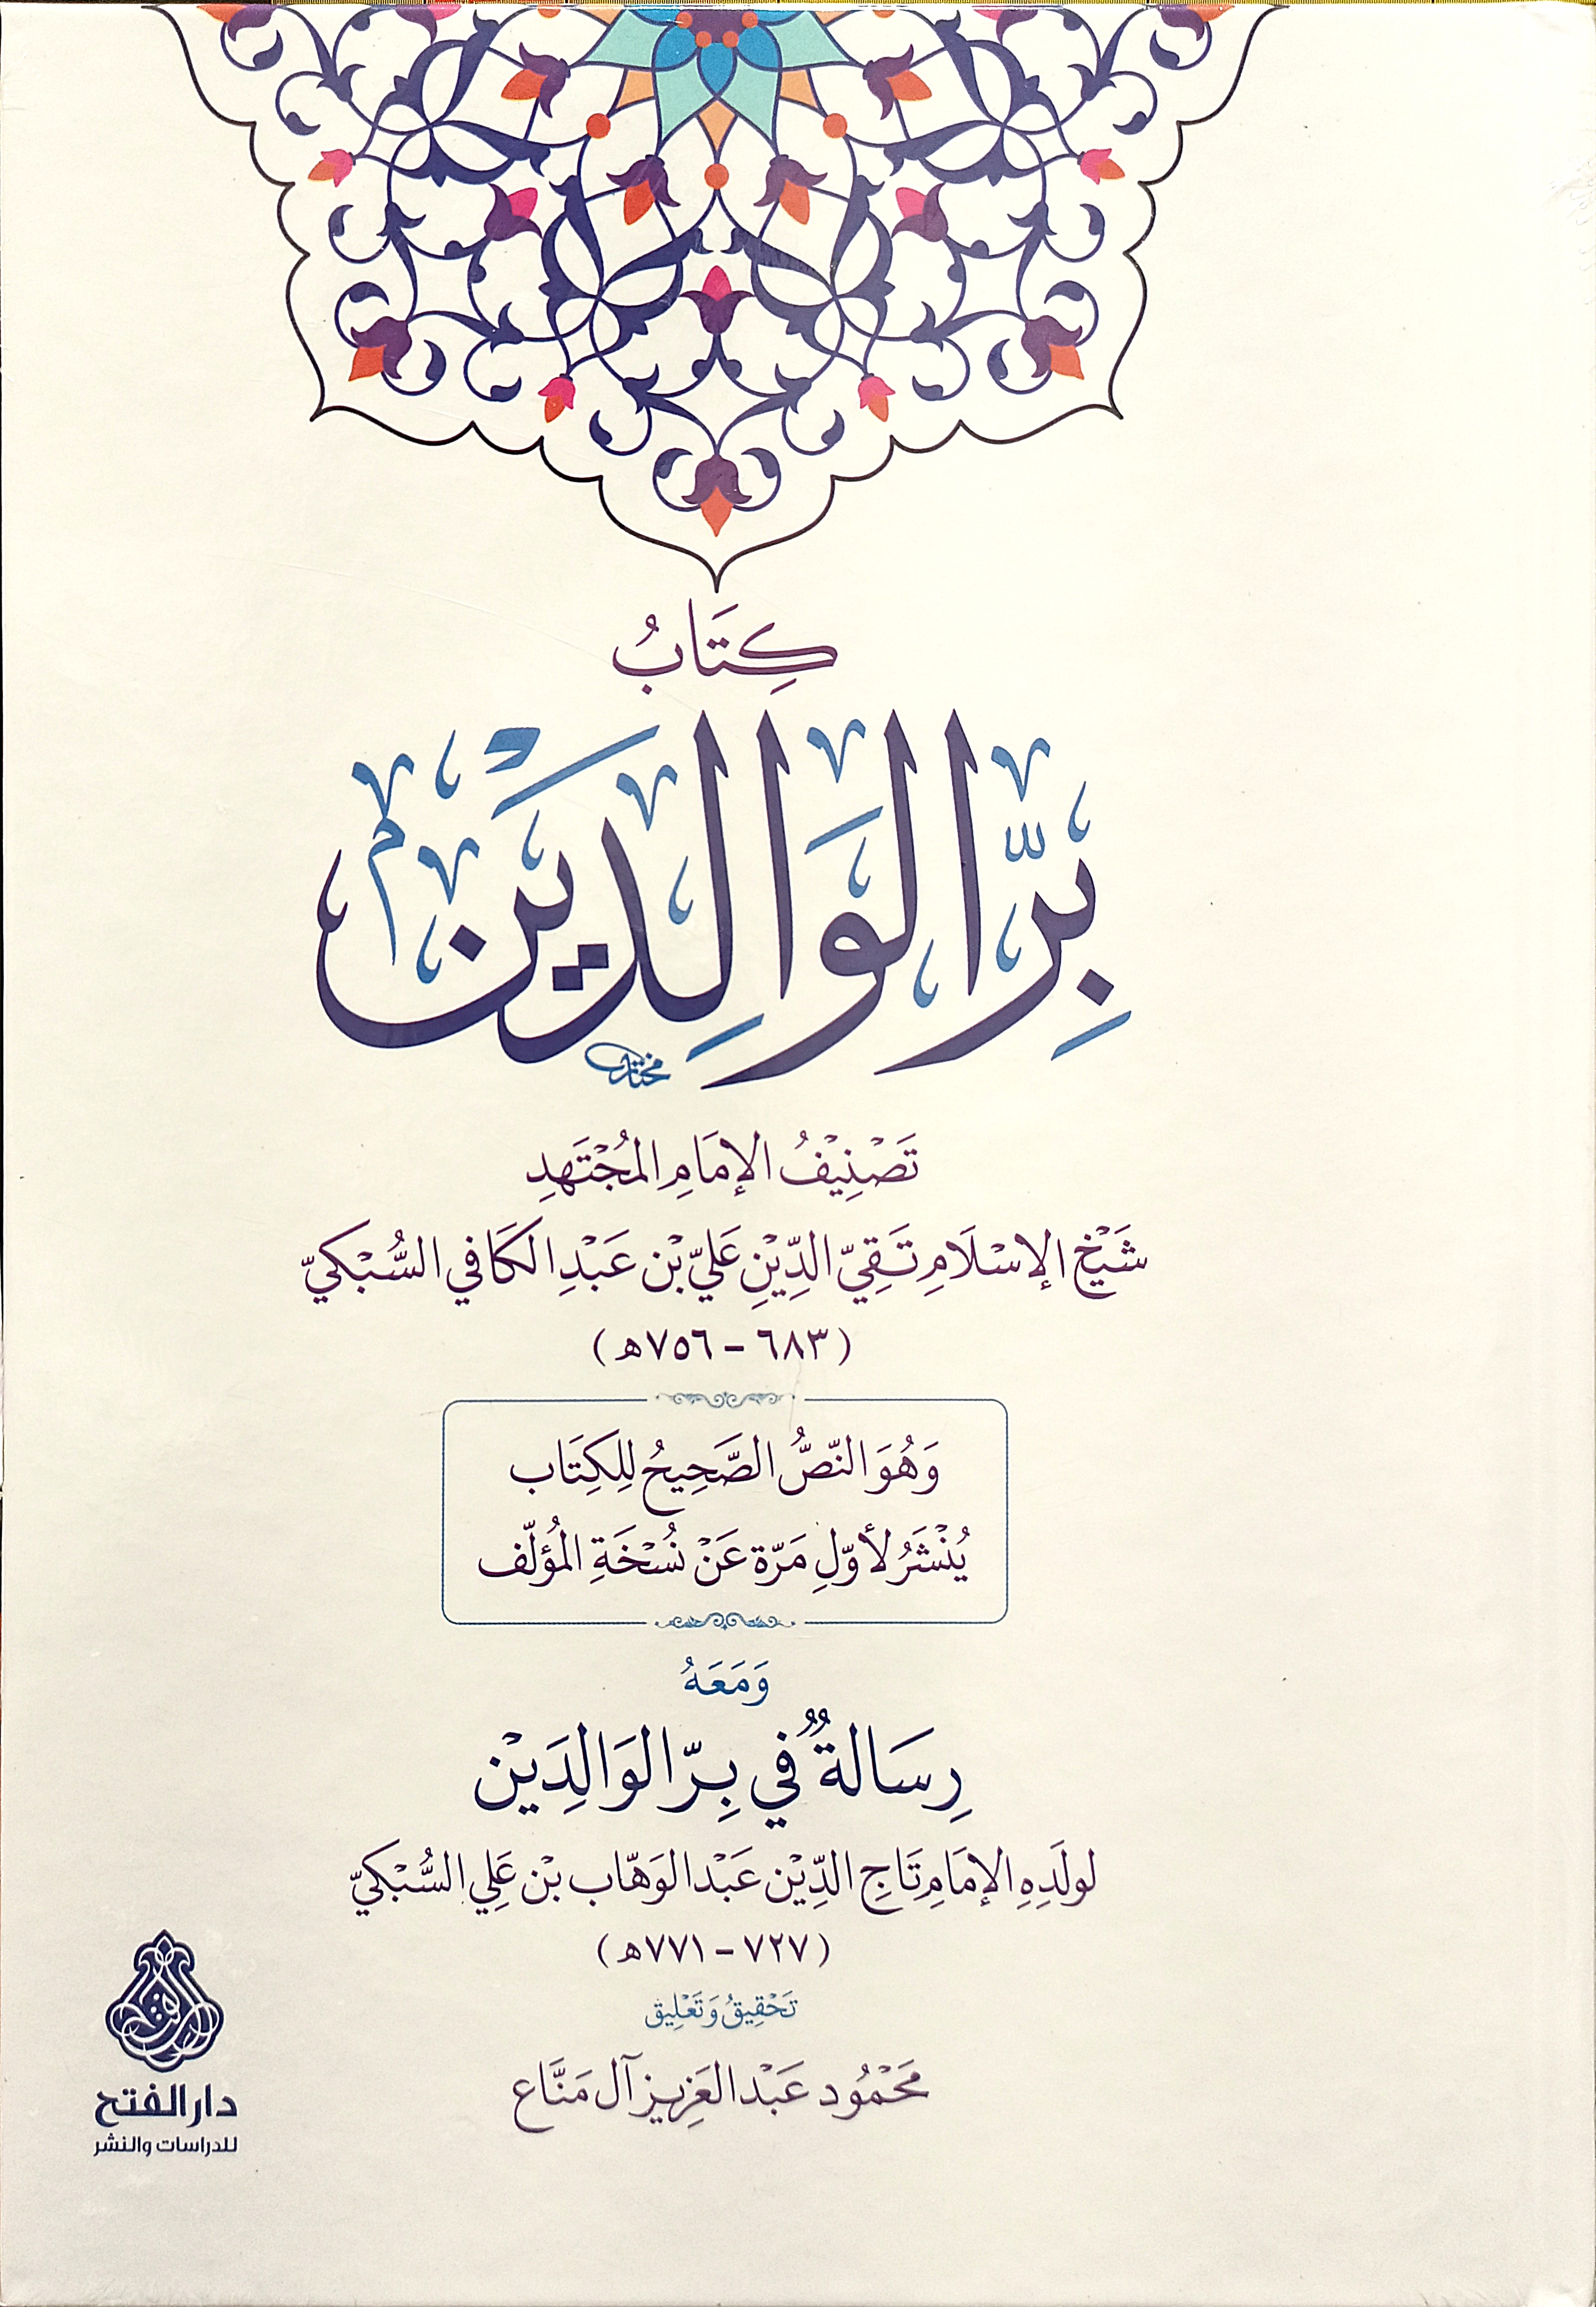 كِتَابُ
بِرِّ الوَالِدَيْنِ
مختار
تَصْنِيْفُ الإمَامِ المُجْتَهِدِ
شَيْخِ الإسْلَامِ تَقِيّ الدِّيْنِ عَليّ بْن عَبْدِ الكَافي السُّبْكيّ
(٦٨٣ - ٧٥٦هـ)
وَهُوَ النّصُّ الصَّحِيحُ لِلكِتَاب
يُنْشَرُ لأوّلِ مَرّة عَنْ نُسْخَةِ المُؤلّف
وَمَعَهُ
رِسَالةٌ في بِرّ الوَالِدَيْن
لولَدِهِ الإمَامِ تَاجِ الدِّيْن عَبْد الوَهّاب بْن عَلِي السُّبْكيّ
(٧٢٧ - ٧٧١هـ)
تَحْقِيقُ وَتَعْلِيق
مَحْمُود عَبْد العَزِيز آل مَنَّاع
الفتح
دار الفتح
للدراسات والنشر